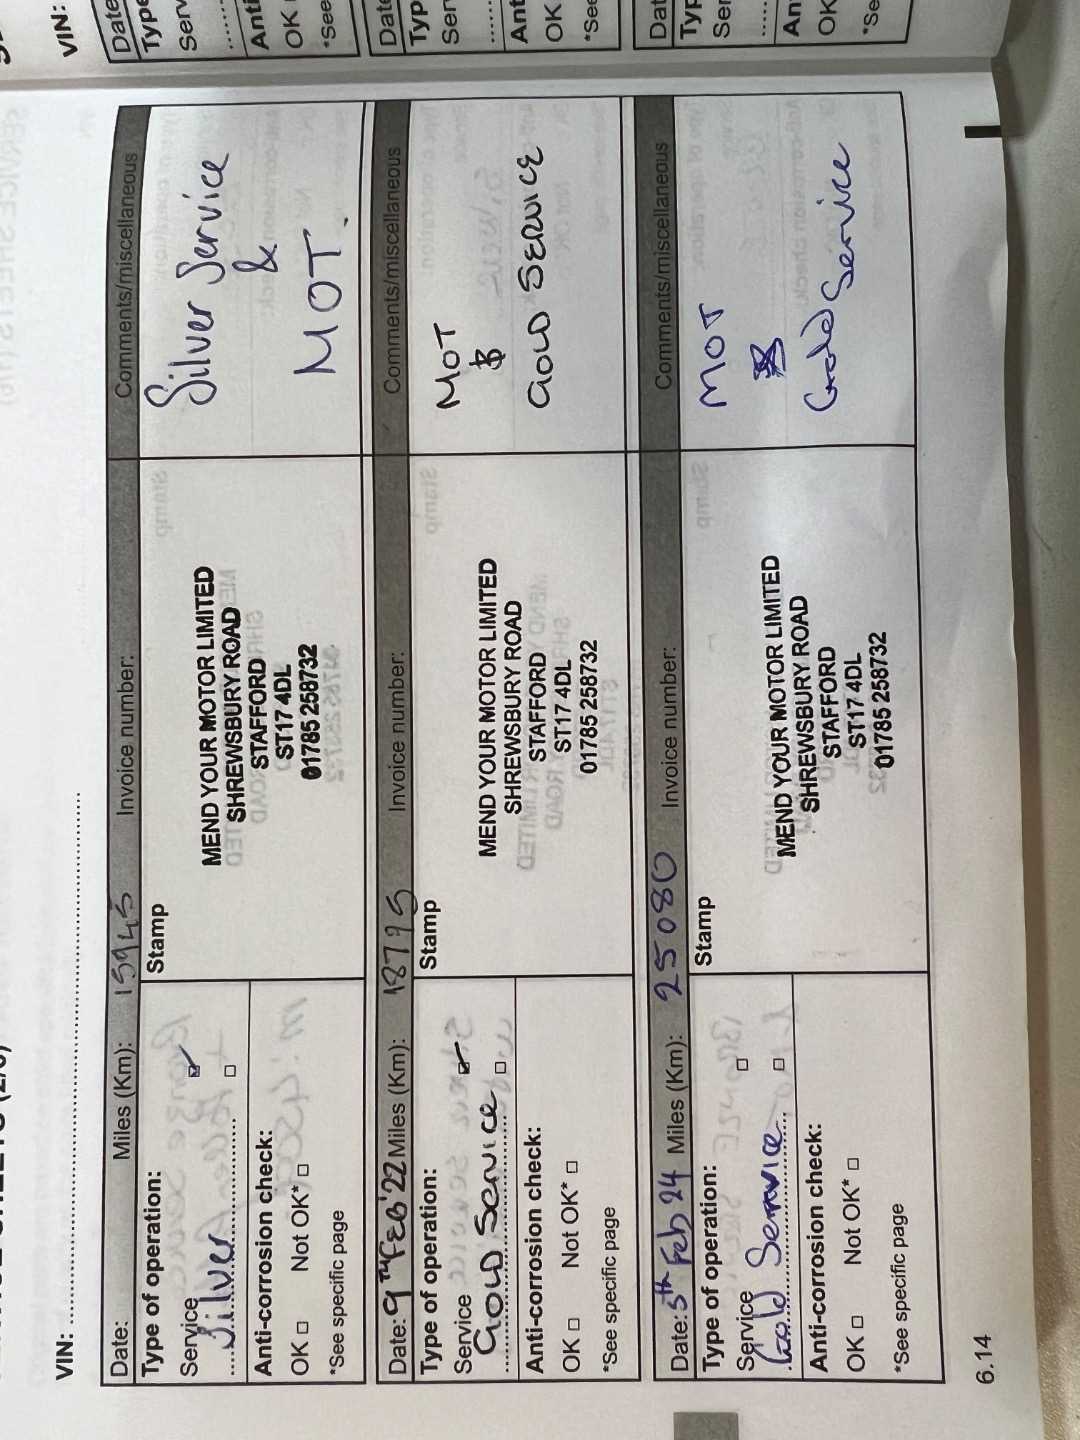 VIN: ........................................................................
Date: Miles (Km): 15945 Invoice number: Comments/miscellaneous
Type of operation:
Stamp
Service
Silver
Anti-corrosion check:
OK □ Not OK* □
*See specific page
MEND YOUR MOTOR LIMITED
SHREWSBURY ROAD
STAFFORD
ST17 4DL
01785 258732
Silver Service
&
MOT.
Date: 9TH FEB '22 Miles (Km): 18795 Invoice number: Comments/miscellaneous
Type of operation:
Stamp
Service
GOLD Service
Anti-corrosion check:
OK □ Not OK* □
*See specific page
MEND YOUR MOTOR LIMITED
SHREWSBURY ROAD
STAFFORD
ST17 4DL
01785 258732
MOT
&
GOLD SERVICE
Date: 5th Feb 24 Miles (Km): 25080 Invoice number: Comments/miscellaneous
Type of operation:
Stamp
Service
Gold Service
Anti-corrosion check:
OK □ Not OK* □
*See specific page
MEND YOUR MOTOR LIMITED
SHREWSBURY ROAD
STAFFORD
ST17 4DL
01785 258732
MOT
&
Gold Service
6.14
VIN: